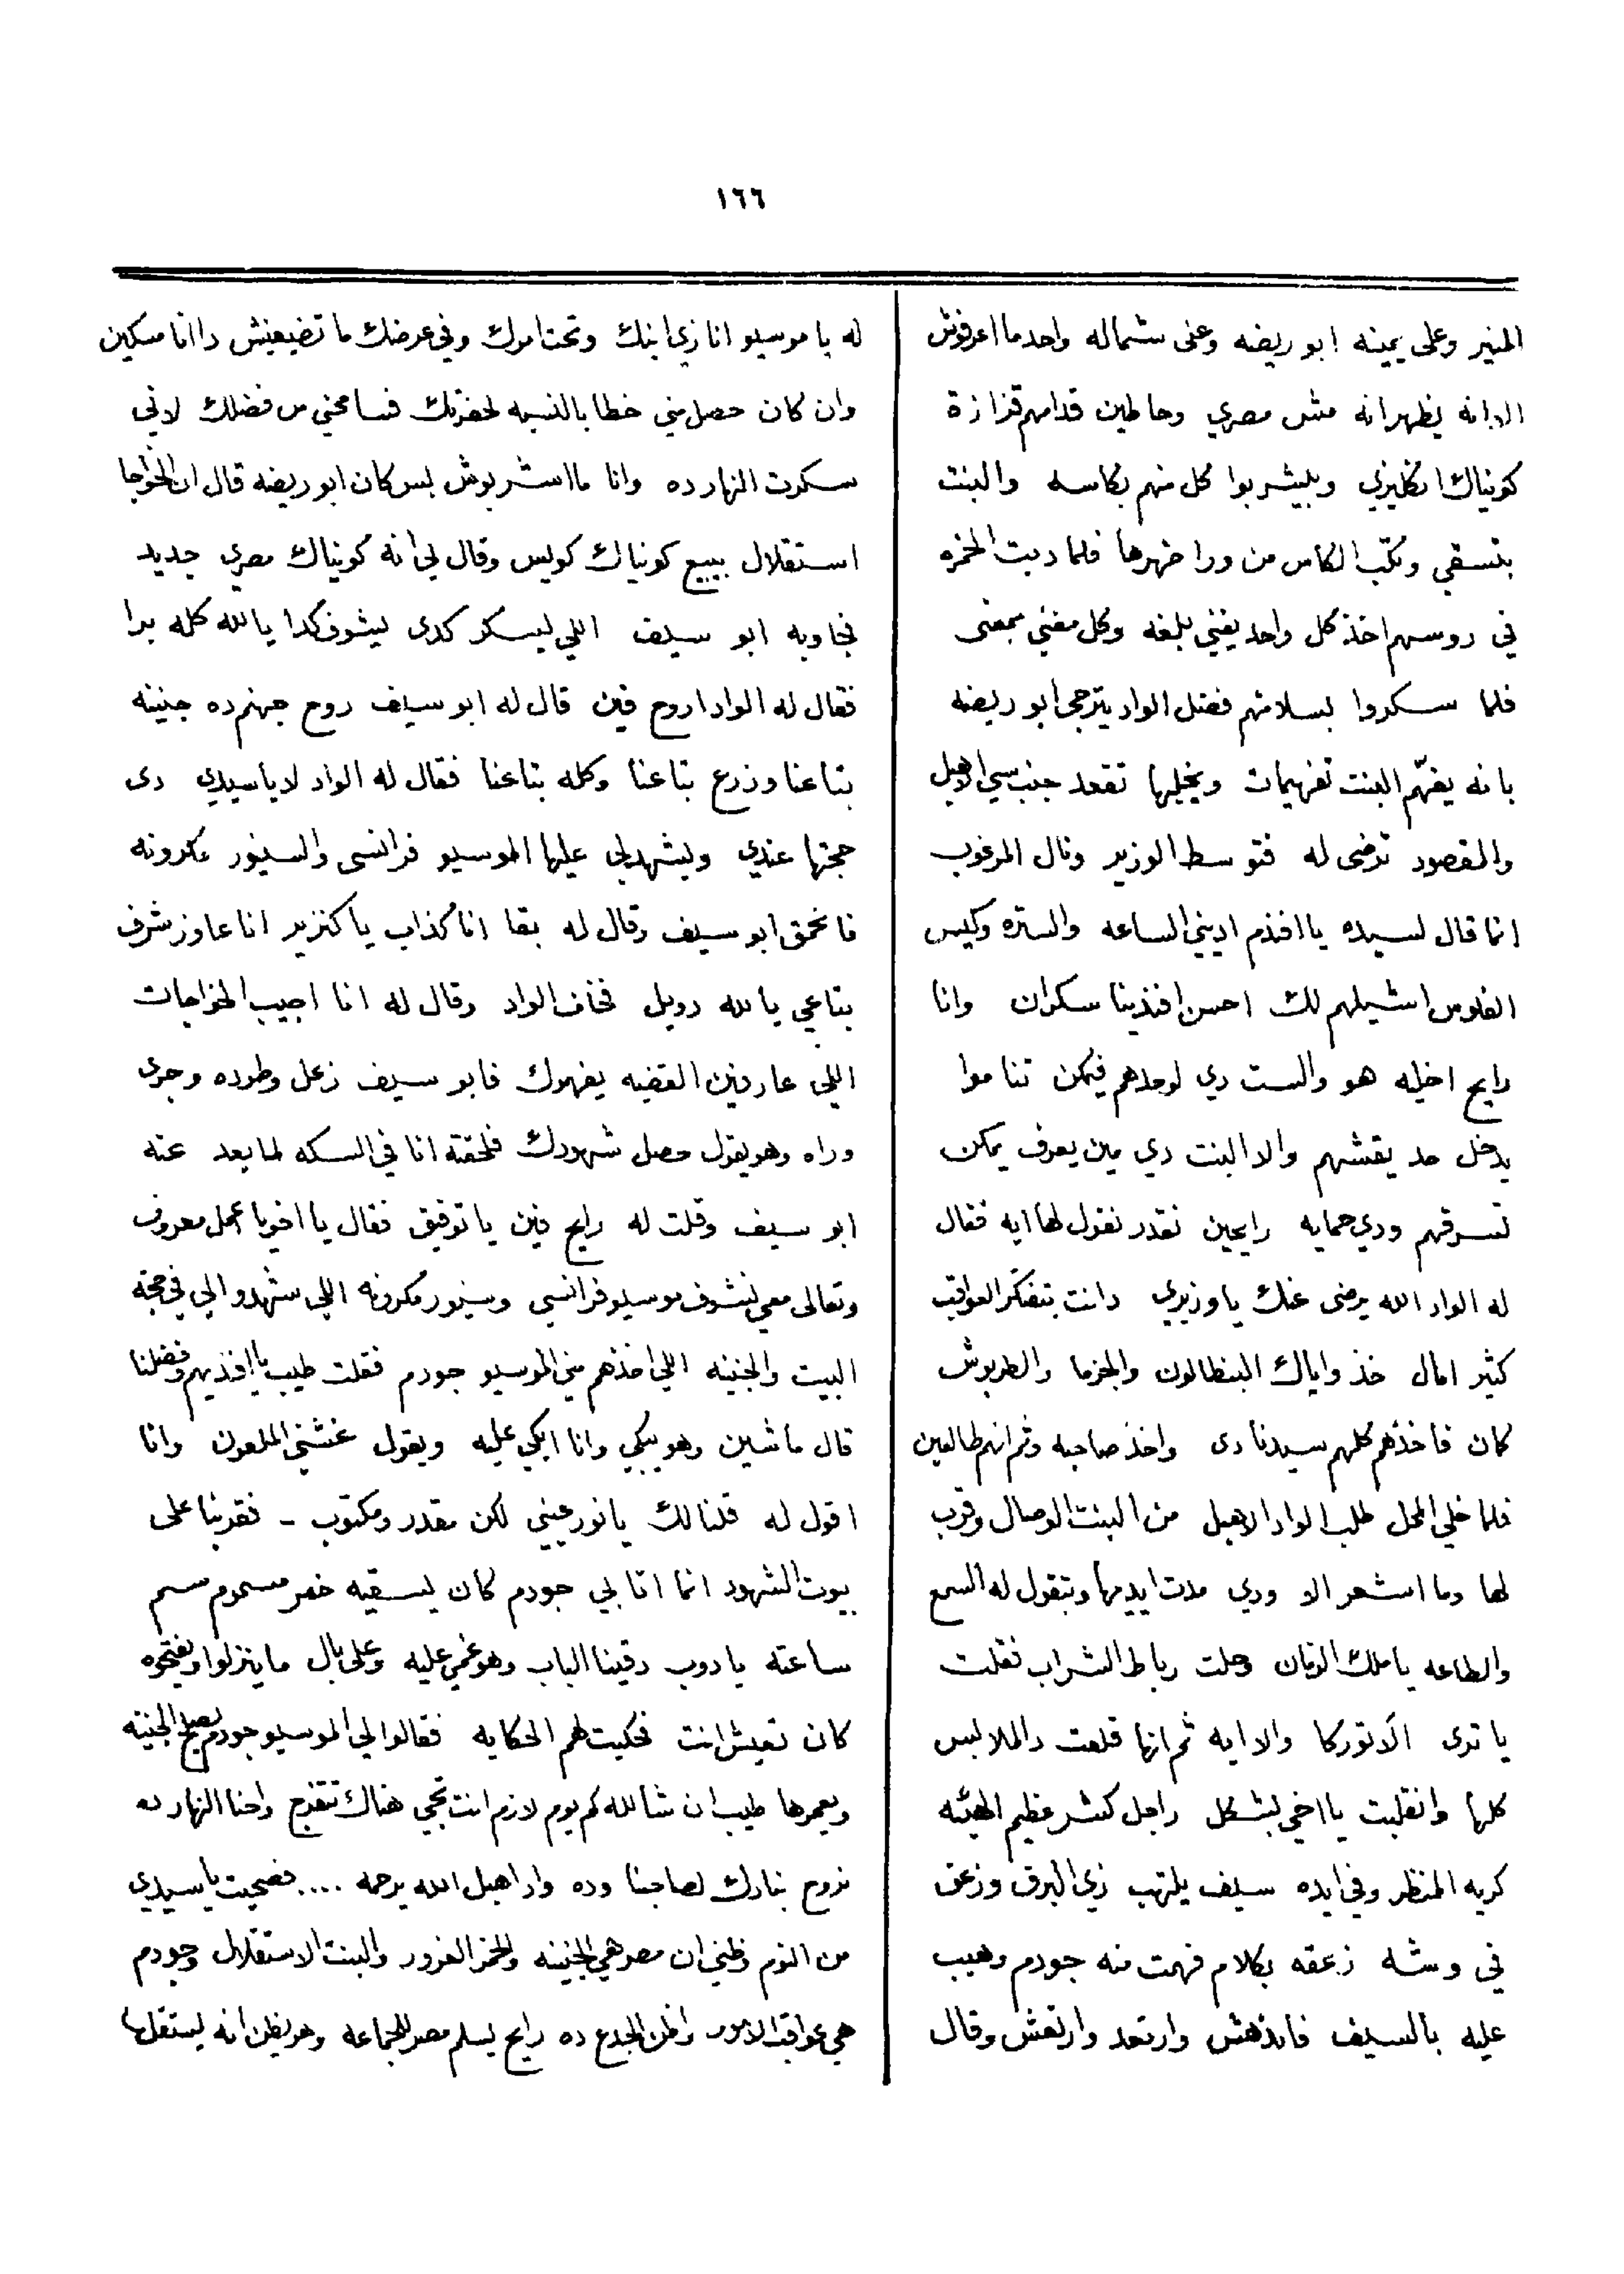 ١٦٦
المنير وعلى يمينه ابو ريضه وعلى شماله واحد ما اعرفوش
الا انه يظهر انه مش مصري وحاطين قدامهم قزازة
كونياك انكليزي وبيشربوا كل منهم بكاسه والبنت
بتسقي وتكب الكاس من ورا ضهرها فلما دبت الخمره
في روسهم اخذ كل واحد يغني بلغه وكل مغني بمعنى
فلما سكروا بسلامتهم فضل الواد يترجى ابو ريضه
بانه يفهّم البنت تفهيمات ويخليها تقعد جنب سي الاهبل
والمقصود ترضى له فتوسط الوزير ونال المرغوب
انما قال لسيده يا افندم اديني الساعه والستره وكيس
الفلوس اشيلهم لك احسن افندينا سكران وانا
رايح اخليه هو والست دي لوحدهم فيمكن تناموا
يدخل حد يقشهم والا البنت دي مين يعرف يمكن
تسرقهم ودي حمايه رايحين نقدر نقول لها ايه فقال
له الواد الله يرضى عنك يا وزيري دانت بتفتكر العواقب
كثير امال خذ واياك البنطالون والجزما والطربوش
كمان فاخذهم كلهم سيدنا دى واخذ صاحبه وثم انهم طالعين
فلما خلي المحل طلب الواد الاهبل من البنت الوصال وقرب
لها وما استشعر الا ودي مدت ايديها وبتقول له السمع
والطاعه يا ملك الزمان وحلت رباط الشراب فقلت
يا ترى الاتوركا والا ايه ثم انها قلعت دالملابس
كلها وانقلبت يا اخي بشكل راجل كشر عظيم الهيئه
كريه المنظر وفي ايده سيف يلتهب زي البرق وزعق
في وشه زعقه بكلام فهمت منه جودم وهيب
عليه بالسيف فاندهش وارتعد وارتعش وقال
له يا موسيو انا زي ابنك وتحت امرك وفي عرضك ما تضيعنيش دا انا مسكين
وان كان حصل مني خطا بالنسبه لحضرتك فسامحني من فضلك لاني
سكرت النهارده وانا ما اشربوش بس كان ابو ريضه قال ان الخواجا
استقلال بيبيع كونياك كويس وقال لي انه كونياك مصري جديد
فجاوبه ابو سيف اللي ليسكر كدى ليشوف كدا يالله كله برا
فقال له الواد اروح فين قال له ابو سيف روح جهنم ده جنينه
بتاعنا وزرع بتاعنا وكله بتاعنا فقال له الواد لا يا سيدي دى
حجتها عندي ويشهد لي عليها الموسيو فرانسى والسنيور مكرونه
فانحمق ابو سيف وقال له بقا انا كذاب يا كنزير انا عاوز شرف
بتاعي يالله رويل فخاف الواد وقال له انا اجيب الخواجات
اللي عارفين القضيه يفهموك فابو سيف زعل وطرده وجرى
وراه وهو يقول حصل شهودك فلحقته انا في السكه لما بعد عنه
ابو سيف وقلت له رايح فين يا توفيق فقال يا اخويا اعمل معروف
وتعالى معي نشوف موسيو فرانسي وسنيور مكرونه اللي شهدوا لي في حجة
البيت والجنينه اللي اخذهم مني الموسيو جودم فقلت طيب يا افنديهم وفضلنا
قال ماشين وهو يبكي وانا ابكي عليه ويقول غشني الملعون وانا
اقول له قلنا لك يا نور عيني لكن مقدر ومكتوب - فقربنا على
بيوت الشهود انما اتا بي جودم كان ليسقيه خمر مسموم سم
ساعته يا دوب دقينا الباب وهو غمي عليه وعلى بال ما ينزلوا ويفتحوه
كان تعيش انت فحكيت لهم الحكايه فقالوا لي الموسيو جودم يصلح الجنينه
ويعمرها طيب ان شالله كم يوم لازم انت تجي هناك تتفرج واحنا النهارده
نروح نبارك لصاحبنا وده واد اهبل الله يرحمه .... فصحيت يا سيدي
من النوم وظني ان مصر هي الجنينه والخمر الغرور والبنت الاستقلال وجودم
هي عواقب الامور واظن الجدع ده رايح يسلم مصر للجماعه وهو يظن انه ليستقلها